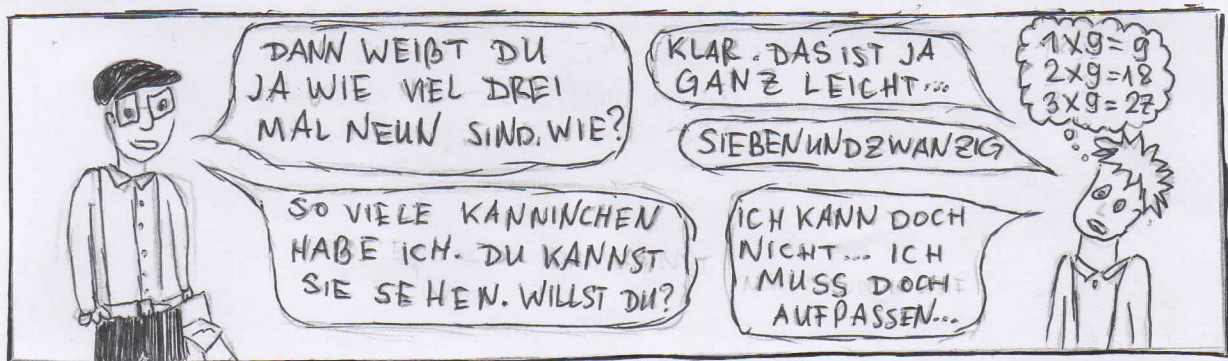 DANN WEIẞT DU
JA WIE VIEL DREI
MAL NEUN SIND. WIE?
KLAR. DAS IST JA
GANZ LEICHT...
1X9=9
2X9=18
3X9=27
SIEBENUNDZWANZIG
SO VIELE KANNINCHEN
HABE ICH. DU KANNST
SIE SEHEN. WILLST DU?
ICH KANN DOCH
NICHT... ICH
MUSS DOCH
AUFPASSEN...